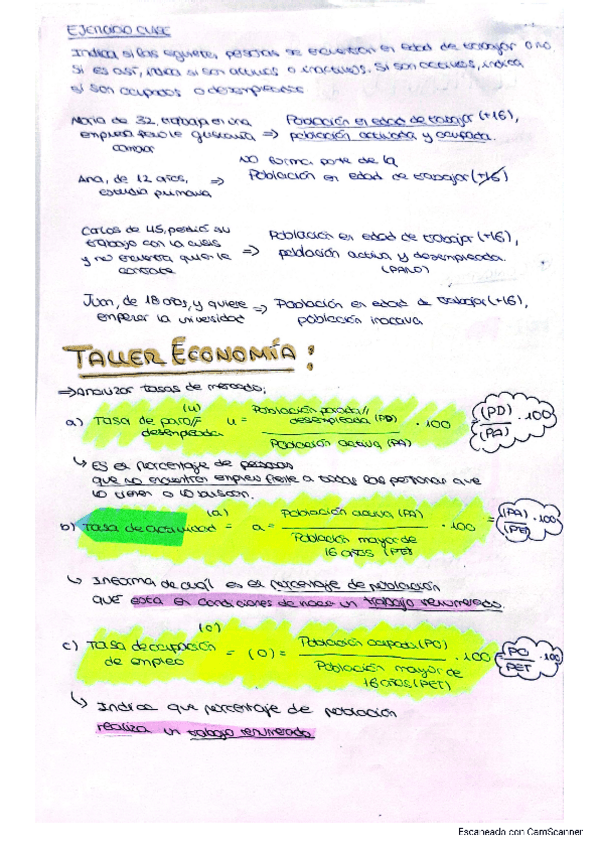 EJERCICIO CLASE
Indica si las siguientes personas se encuentran en edad de trabajar o no.
Si es así, indica si son activos o inactivos. Si son activos, indica
si son ocupados o desempleados
María de 32, trabaja en una empresa pero le gustaría cambiar => Población en edad de trabajar (+16), población activada y ocupada.
Ana, de 12 años, estudia primaria => No forma parte de la Población en edad de trabajar (+16)
Carlos de 45, perdió su trabajo con la crisis y no encuentra quien le contrate => Población en edad de trabajar (+16), población activa y desempleada. (PARO)
Juan, de 18 años, y quiere empezar la universidad => Población en edad de trabajar (+16), población inactiva
TALLER ECONOMÍA:
=> Analizar tasas de mercado:
a) Tasa de paro// desempleada (u) u = Población parada// desempleada (PD) / Población activa (PA) · 100 = (PD) / (PA) · 100
↳ Es el porcentaje de personas
que no encuentran empleo frente a todas las personas que
lo tienen o lo buscan.
b) Tasa de actividad (a) = a = Población activa (PA) / Población mayor de 16 años (PET) · 100 = (PA) / (PET) · 100
↳ Informa de cuál es el porcentaje de población
que está en condiciones de hacer un trabajo remunerado.
c) Tasa de ocupación de empleo (o) = (o) = Población ocupada (PO) / Población mayor de 16 años (PET) · 100 = PO / PET · 100
↳ Indica que porcentaje de población
realiza un trabajo remunerado
Escaneado con CamScanner